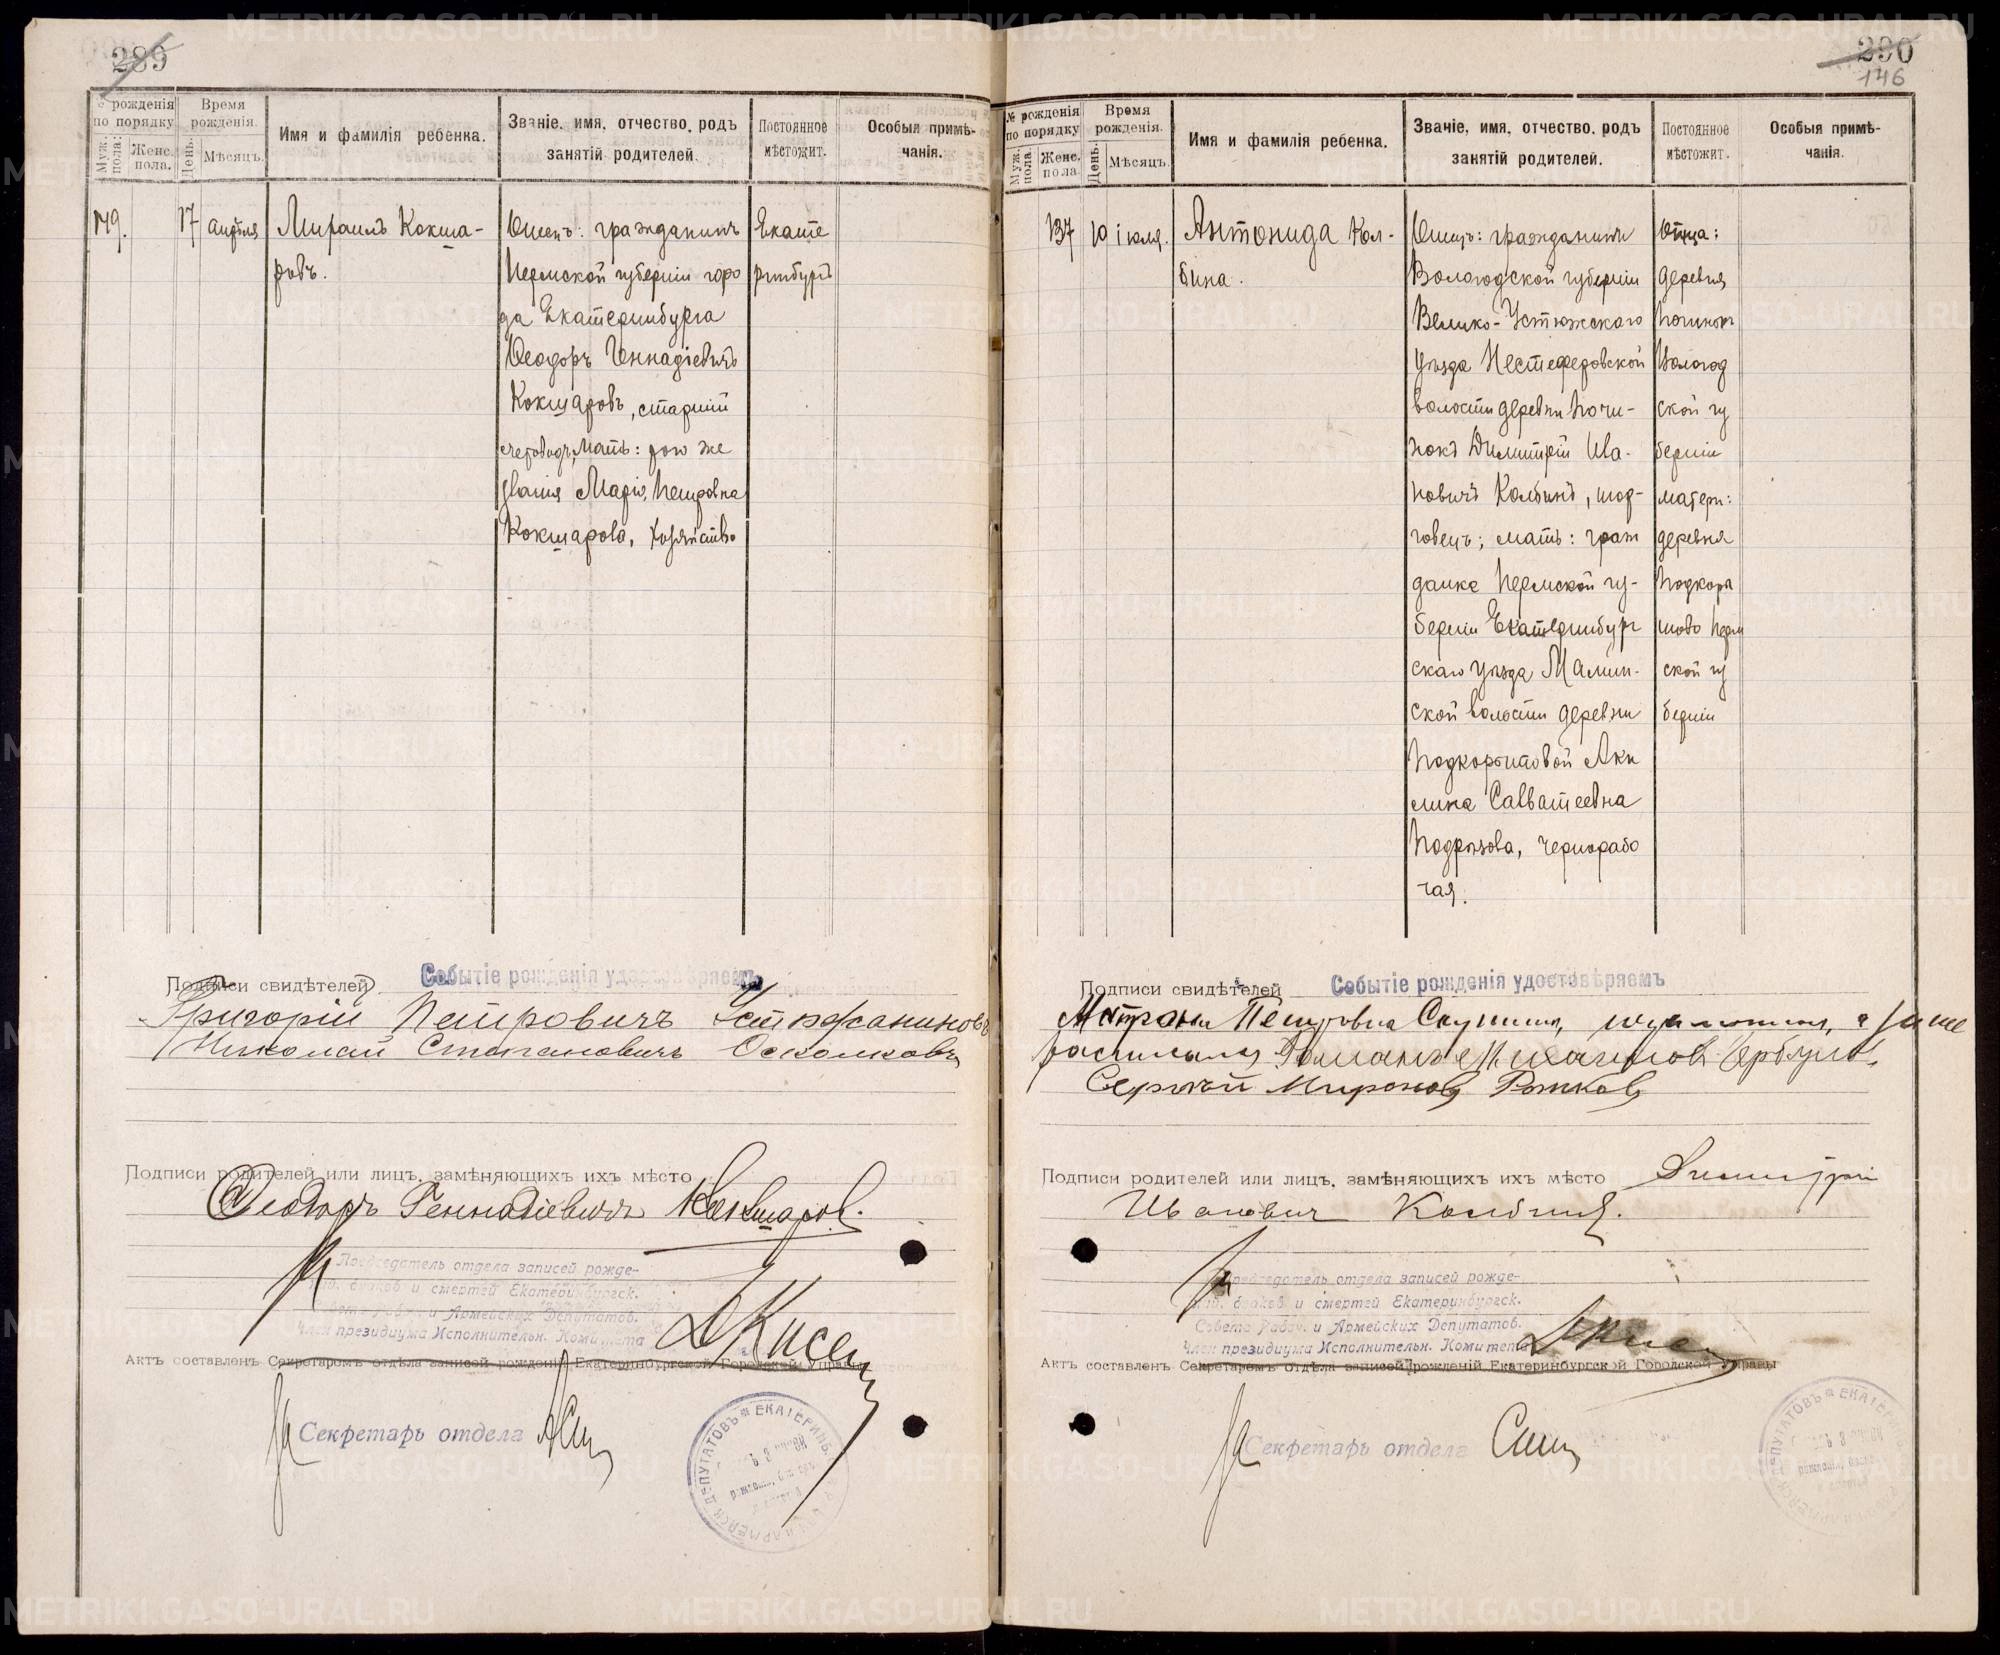 289
№ рожденія по порядку
Муж. пола.
Женс. пола.
Время рожденія.
День.
Мѣсяцъ.
Имя и фамилія ребенка.
Званіе, имя, отчество, родъ
занятій родителей.
Постоянное
мѣстожит.
Особыя примѣ-
чанія.
149.
17 апрѣля
Михаилъ Кокша-
ровъ.
Отецъ: гражданинъ
Пермской губерніи горо
да Екатеринбурга
Ѳеодоръ Геннадіевичъ
Кокшаровъ, старшій
счетоводъ, мать: того же
званія Марія Петровна
Кокшарова, хозяйство
Екате
ринбургъ
Подписи свидѣтелей
Событіе рожденія удостовѣряемъ
Григорій Петровичъ
Николай Степановичъ Осколковъ
Подписи родителей или лицъ, замѣняющихъ ихъ мѣсто
Ѳеодоръ Геннадіевичъ Кокшаровъ.
Председатель отдела записей рожде-
ний, браков и смертей Екатеринбургск.
Совета Рабоч. и Армейских Депутатов.
Член президиума Исполнительн. Комитета
Актъ составленъ Секретаремъ отдѣла записей рожденій Екатеринбургской Городской Управы
За Секретарь отдела
290
146
№ рожденія
по порядку
Муж. пола.
Женс. пола.
Время
рожденія.
День.
Мѣсяцъ.
Имя и фамилія ребенка.
Званіе, имя, отчество, родъ
занятій родителей.
Постоянное
мѣстожит.
Особыя примѣ-
чанія.
137
10 іюля.
Антонида Кол-
бина.
Отецъ: гражданинъ
Вологодской губерніи
Велико-Устюжскаго
уѣзда Нестеферовской
волости деревни Почи-
нокъ Димитрій Ива-
новичъ Колбинъ, тор-
говецъ; мать: граж
данка Пермской гу-
берніи Екатеринбург
скаго уѣзда Мамин-
ской волости деревни
Подкорытовой Аки
лина Савватеевна
Подрѣзова, чернорабо
чая.
Отца:
деревня
Починокъ
Вологод
ской гу
берніи
матери:
деревня
Подкоры
това Перм
ской гу
берніи
Подписи свидѣтелей
Событіе рожденія удостовѣряемъ
Матрона Петровна
Сергѣй Мироновъ Рожковъ
Подписи родителей или лицъ, замѣняющихъ ихъ мѣсто Димитрій
Ивановичъ Колбинъ.
Председатель отдела записей рожде-
ний, браков и смертей Екатеринбургск.
Совета Рабоч. и Армейских Депутатов.
Член президиума Исполнительн. Комитета
Актъ составленъ Секретаремъ отдѣла записей рожденій Екатеринбургской Городской Управы
За Секретарь отдела
METRIKI.GASO-URAL.RU